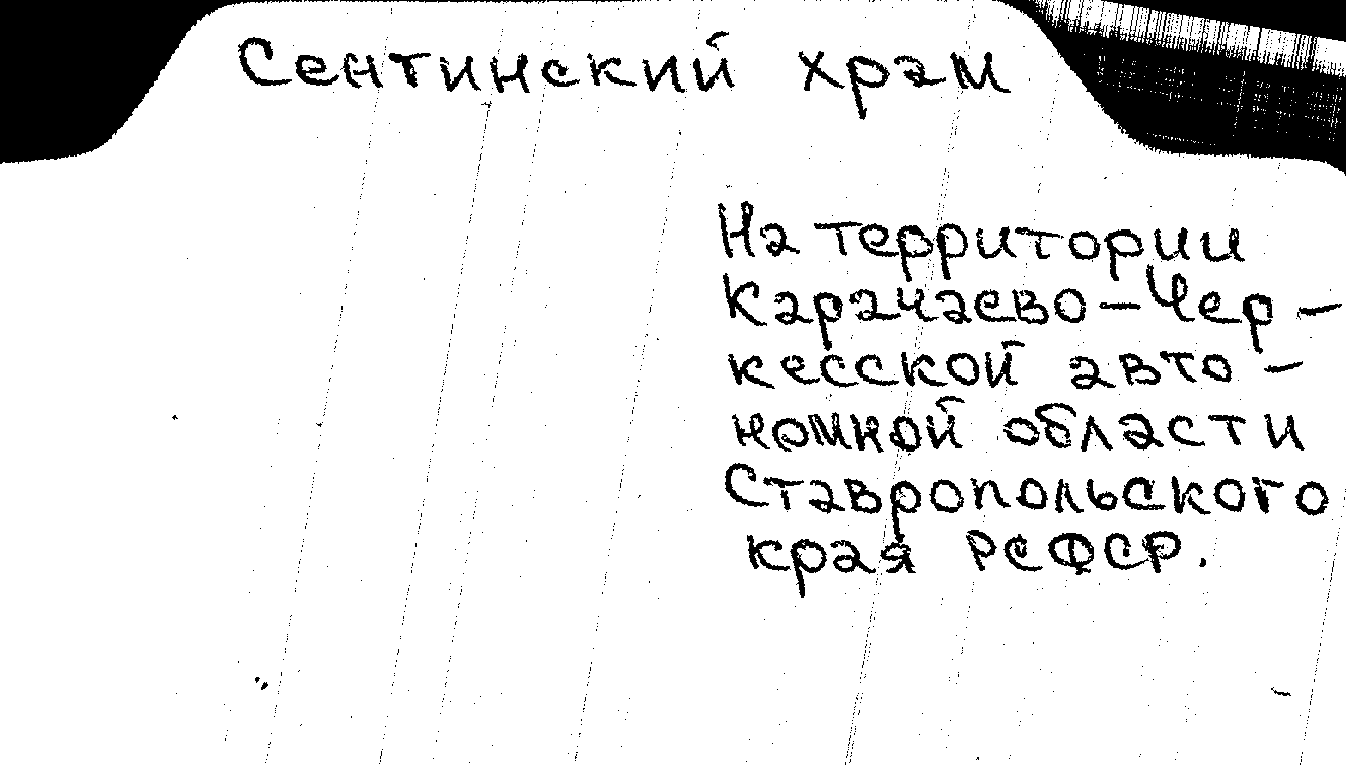 Сентинский храм
На территории
Карачаево-Чер-
кесской авто-
номной области
Ставропольского
края РСФСР.